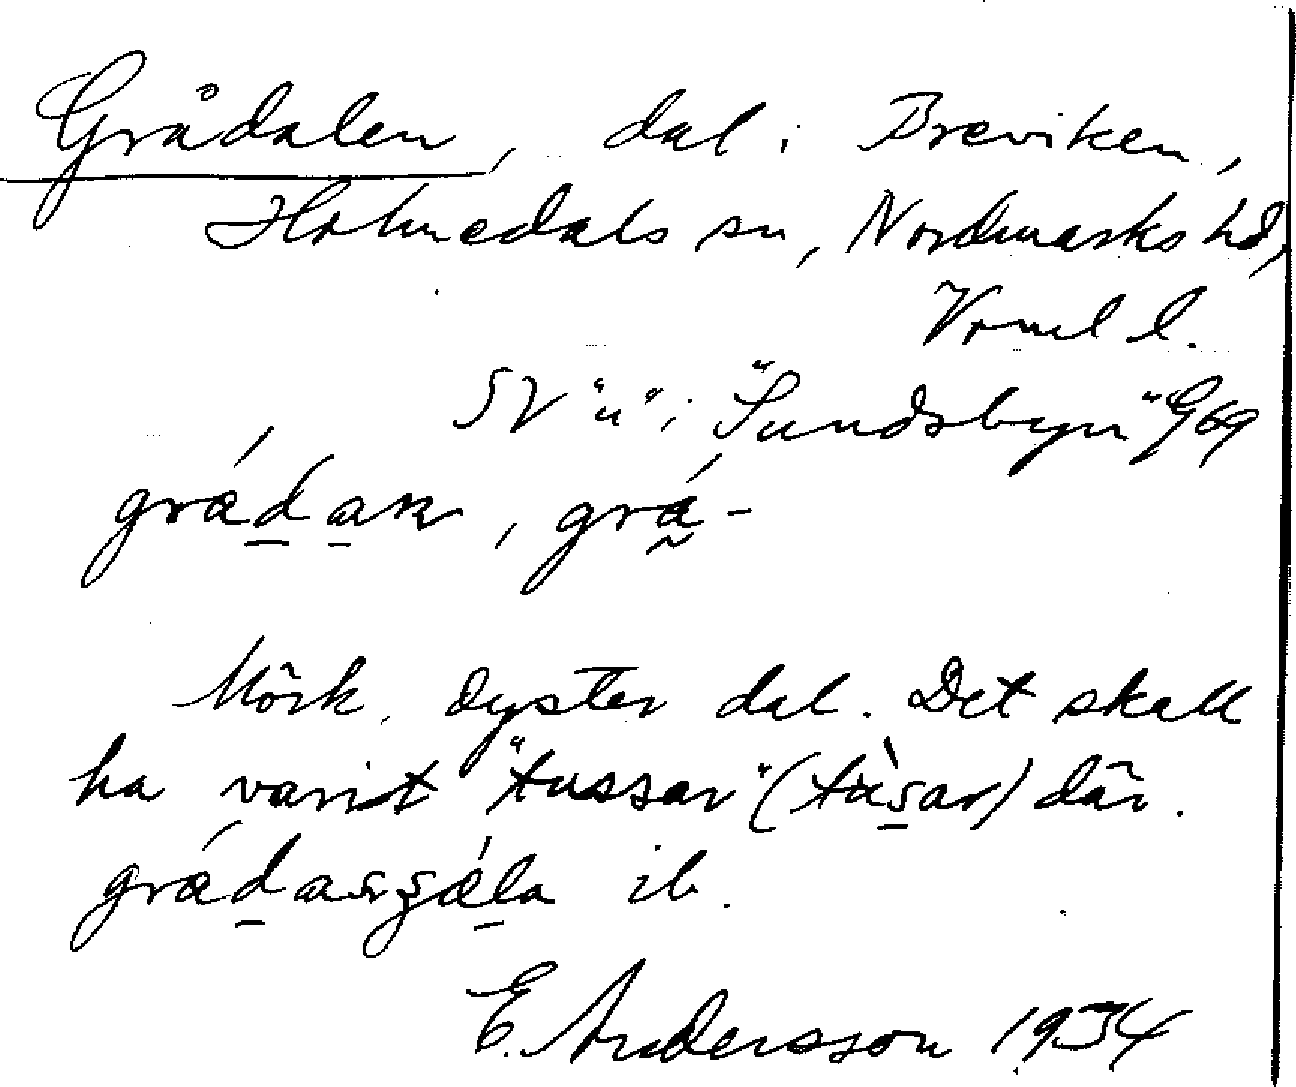 Grådalen, dal i Breviken,
Holmedals sn, Nordmarks hd,
Vrml l.
SV "u" i "Sundsbyn" G69
grádan, grá-
Mörk, dyster dal. Det skall
ha varit "tussar" (tùsar) där.
ib.
E. Andersson 1934